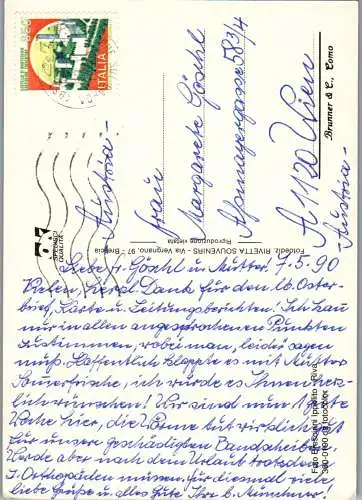 850
ITALIA
- Austria -
Frau
Margarete Göschl
Alpmayergasse 583/4
A 1130 Wien
Austria -
Brunner & C., Como
77
SPRINGER
QUALITÄT
Fotoediz. RIVETTA SOUVENIRS - Via Vergnano, 97 - Brescia
Riproduzione vietata
Liebe Fr. Göschl u. Mutter! 7.5.90
Vielen, herzl. Dank für den lb. Oster-
brief, Karte u. Zeitungsberichte! Ich kann
nur in allen angesprochenen Punkten
zustimmen, wobei man, leider, sagen
muß. Hoffentlich klappte es mit Mutter
Sommerfrische, ich würde es Ihnen herz-
lich wünschen! Wir sind nun 1 gute
Woche hier, die Wärme tut wirklich gut
für unsere geschädigten Bandscheiben.
Werde aber nach dem Urlaub trotzdem
z. Orthopäden müssen. für diesmal viele
liebe Grüße u. alles Gute Ihre
Foto Ippolito